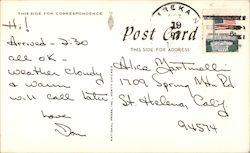 THIS SIDE FOR CORRESPONDENCE
Hi!
Arrived - 2:30
all OK -
Weather Cloudy
& Warm
will call later
Love
Post Card
THIS SIDE FOR ADDRESS
Alice
1709 Spring Mtn Rd
St Helena, Calif
94574
19